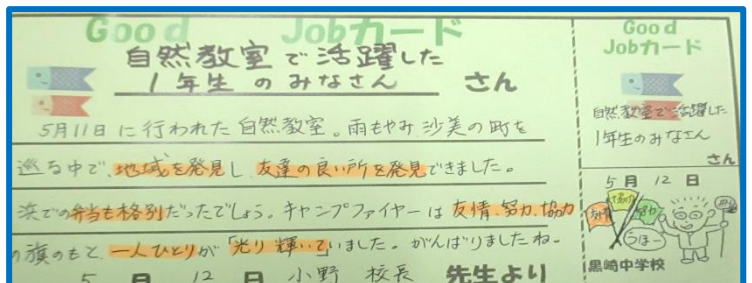 Good Jobカード
自然教室で活躍した
1年生 のみなさん さん
5月11日に行われた自然教室。雨もやみ、沙美の町を
巡る中で、地域を発見し、友達の良い所を発見できました。
浜での弁当も格別だったでしょう。キャンプファイヤーは友情、努力、協力
の旗のもと、一人ひとりが「光り輝いて」いました。がんばりましたね。
5 月 12 日 小野 校長 先生より
Good
Jobカード
自然教室で活躍した
1年生のみなさん
さん
5 月 12 日
協力
努力
うほー
黒崎中学校